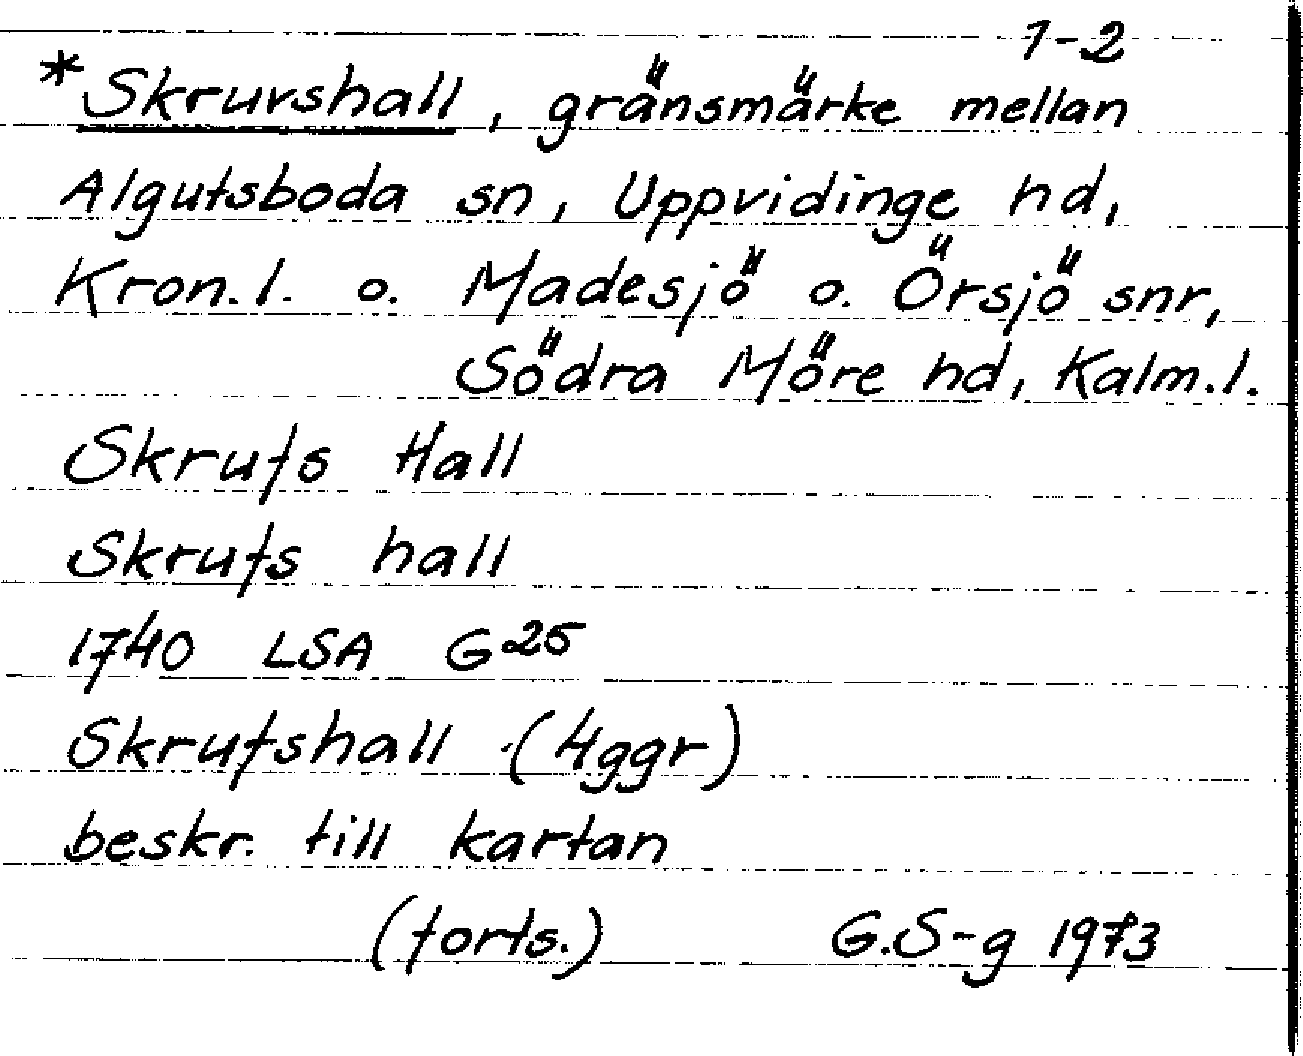 1-2
*Skruvshall, gränsmärke mellan
Algutsboda sn, Uppvidinge hd,
Kron.l. o. Madesjö o. Örsjö snr,
Södra Möre hd, Kalm.l.
Skrufs Hall
Skrufs hall
1740 LSA G25
Skrufshall (4ggr)
beskr. till kartan
(forts.) G.S-g 1973